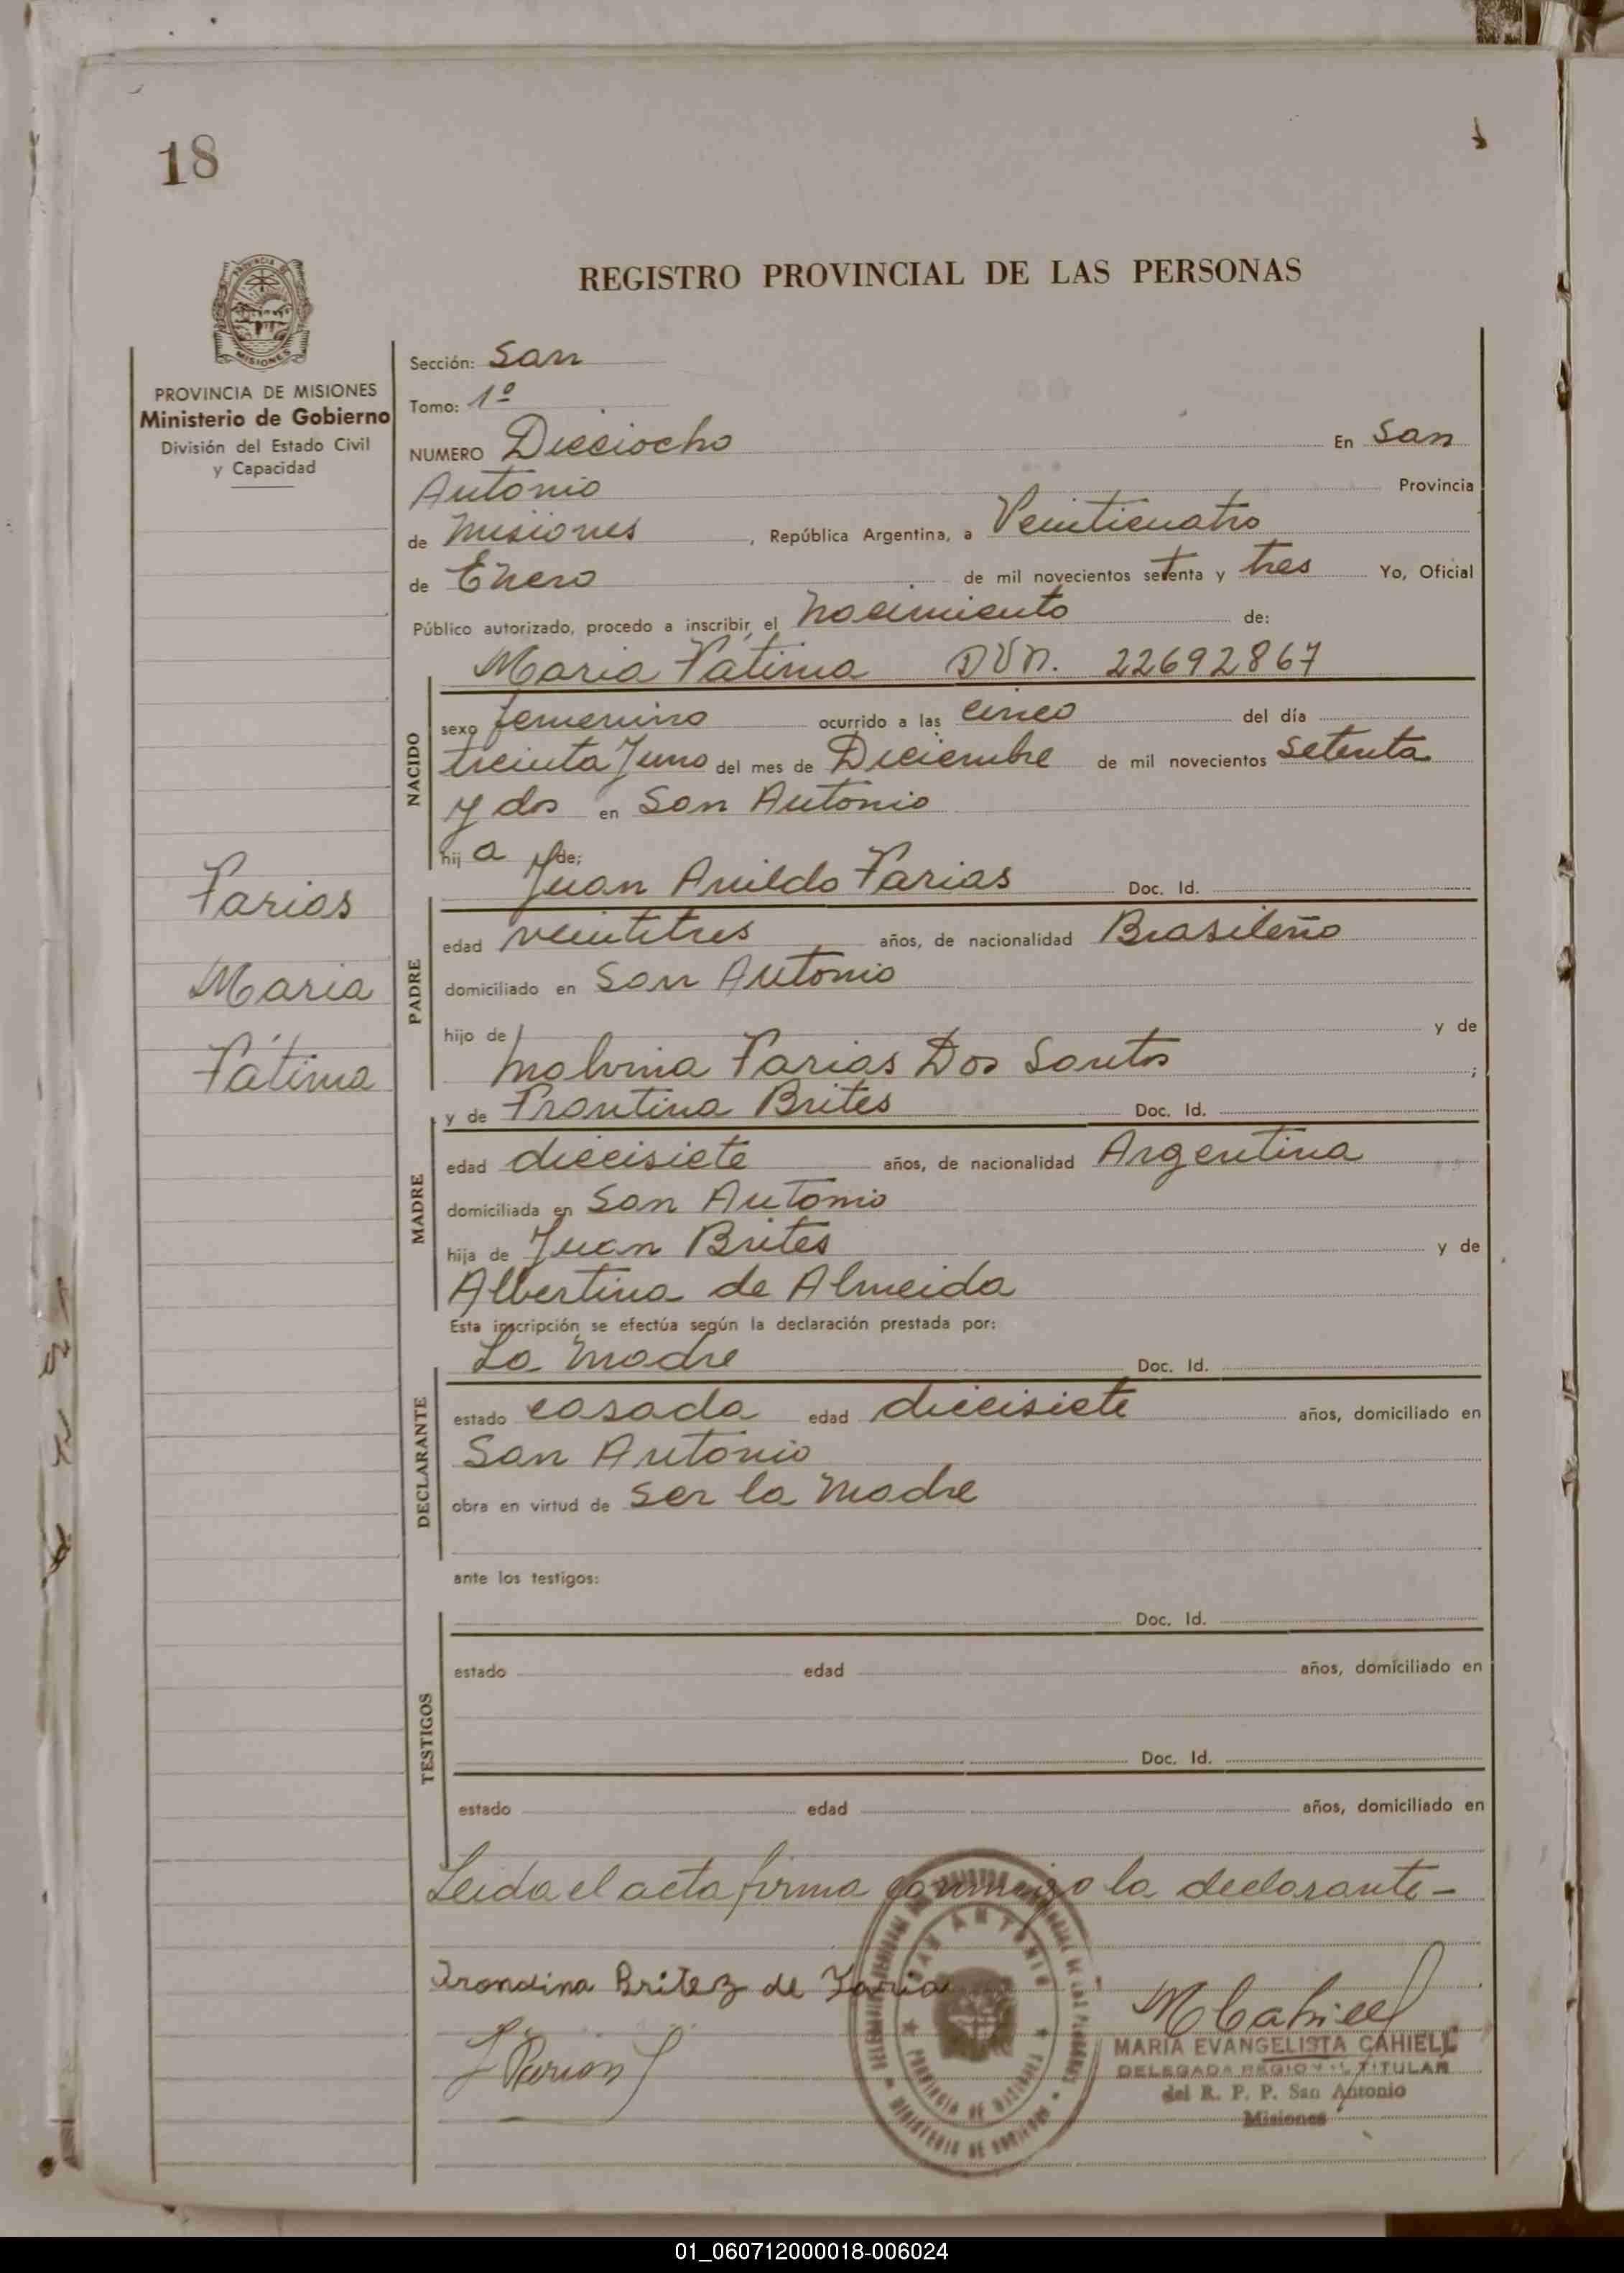 18
REGISTRO PROVINCIAL DE LAS PERSONAS
PROVINCIA DE MISIONES
Ministerio de Gobierno
División del Estado Civil
y Capacidad
Sección: San
Tomo: 1º
NUMERO Dieciocho En San
Antonio Provincia
de Misiones, República Argentina, a Veinticuatro
de Enero de mil novecientos setenta y tres Yo, Oficial
Público autorizado, procedo a inscribir el nacimiento de:
Maria Fatima DUN. 22692867
NACIDO
sexo femenino ocurrido a las cinco del día
treinta y uno del mes de Diciembre de mil novecientos setenta
y dos en San Antonio
hij a de:
Juan Anildo Farias Doc. Id.
Farias
Maria
Fátima
PADRE
edad veintitres años, de nacionalidad Brasileño
domiciliado en San Antonio
hijo de y de
Malvina Farias Dos Santos ;
y de Frontina Brites Doc. Id.
MADRE
edad diecisiete años, de nacionalidad Argentina
domiciliada en San Antonio
hija de Juan Brites y de
Albertina de Almeida
Esta inscripción se efectúa según la declaración prestada por:
La Madre Doc. Id.
DECLARANTE
estado casada edad diecisiete años, domiciliado en
San Antonio
obra en virtud de ser la Madre
ante los testigos:
TESTIGOS
Doc. Id.
estado edad años, domiciliado en
Doc. Id.
estado edad años, domiciliado en
Leida el acta firma conmigo la declarante -
Frondina Britez de Faria
SAN ANTONIO
PROVINCIA DE MISIONES
MINISTERIO DE GOBIERNO
MCahiell
MARIA EVANGELISTA CAHIELL
DELEGADA REGIONAL TITULAR
del R. P. P. San Antonio
Misiones
01_060712000018-006024